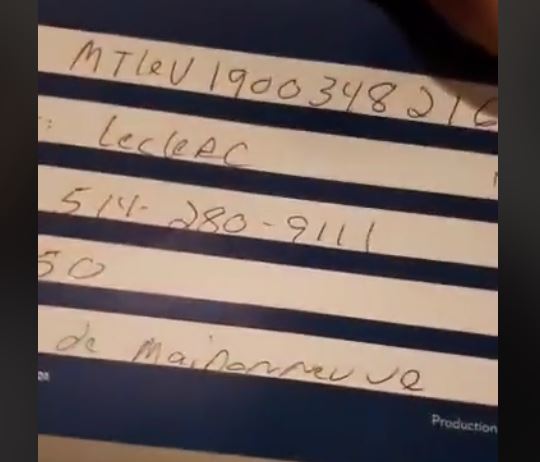 MTLEV1900348216
: LecleRC
514-280-9111
50
de Maisonneuve
Production